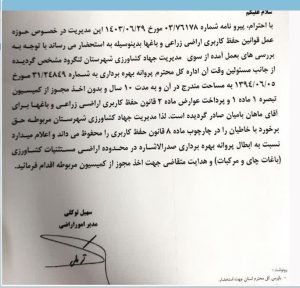 سلام علیکم
با احترام، پیرو نامه شماره ۰۳/۷۶۱۷۸ مورخ ۱۴۰۳/۰۶/۲۹ این مدیریت در خصوص حوزه
عمل قوانین حفظ کاربری اراضی زراعی و باغها بدینوسیله به استحضار می رساند با توجه به
بررسی های بعمل آمده از سوی مدیریت جهاد کشاورزی شهرستان لنگرود مشخص گردیده
از جانب مسئولین وقت آن اداره کل محترم پروانه بهره برداری به شماره ۳۱/۲۴۸۴۹ مورخ
۱۳۹۴/۰۶/۰۵ به مساحت مندرج در آن و به مدت ۱۰ سال و بدون اخذ مجوز از کمیسیون
تبصره ۱ ماده ۱ و پرداخت عوارض ماده ۲ قانون حفظ کاربری اراضی زراعی و باغها برای
آقای ماهان بامیان صادر گردیده است. لذا مدیریت جهاد کشاورزی شهرستان مربوطه حق
برخورد با خاطیان را در چارچوب ماده ۸ قانون حفظ کاربری را محفوظ می داند و اعلام میدارد
نسبت به ابطال پروانه بهره برداری صدرالاشاره در محدوده اراضی مستثنیات کشاورزی
(باغات چای و مرکبات) و هدایت متقاضی جهت اخذ مجوز از کمیسیون مربوطه اقدام فرمائید.
سهیل توکلی
مدیر امور اراضی
رونوشت:
بازرس کل محترم استان جهت استحضار